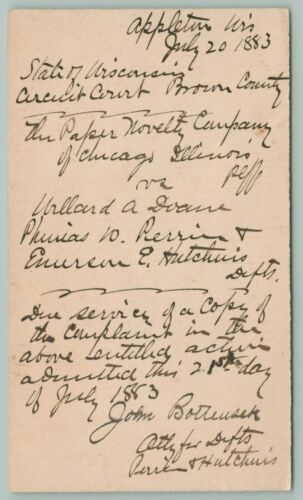 Appleton Wis
July 20 1883
State of Wisconsin
Circuit Court Brown County
The Paper Novelty Company
of Chicago Illinois
Plff
vs
Willard A Doane
Phineas W. Perrin &
Emerson E. Hutchins
Defts.
Due service of a copy of
the Complaint in the
above entitled action
admitted this 21st day
of July 1883
John Bottensek
Atty for Defts
Perrin & Hutchins